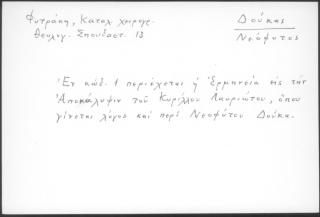 Φυτράκη, Καταλ. χειρογρ.
Θεολογ. Σπουδαστ. 13
Δούκας
Νεόφυτος
Ἐν κώδ. 1 περιέχεται ἡ Ἑρμηνεία εἰς τὴν
Ἀποκάλυψιν τοῦ Κυρίλλου Λαυριώτου, ὅπου
γίνεται λόγος καὶ περὶ Νεοφύτου Δούκα.